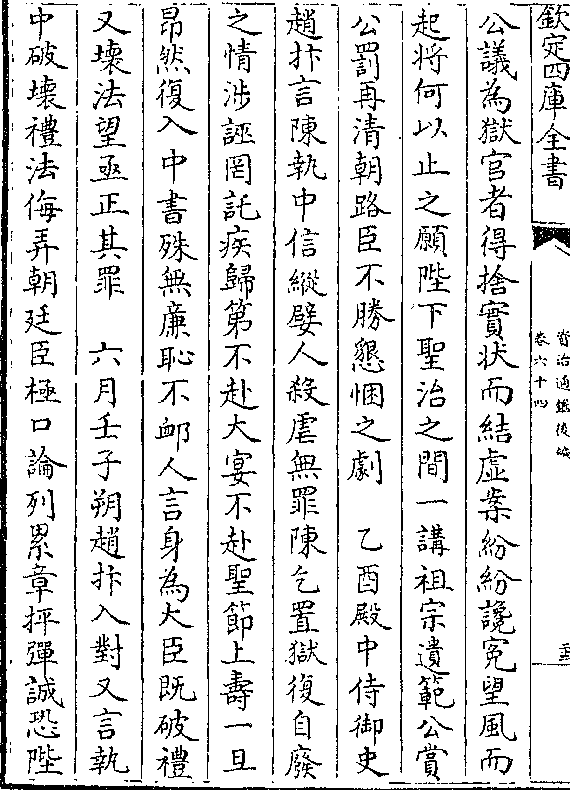 欽定四庫全書
資治通鑑後編
卷六十四
公議為獄官者得捨實狀而結虛案紛紛讒冤望風而
起將何以止之願陛下聖治之間一講祖宗遺範公賞
公罰再清朝路臣不勝懇悃之劇　乙酉殿中侍御史
趙抃言陳執中信縱嬖人殺虐無罪陳乞置獄復自廢
之情涉誣罔託疾歸第不赴大宴不赴聖節上壽一旦
昂然復入中書殊無廉恥不卹人言身為大臣既破禮
又壞法望亟正其罪　六月壬子朔趙抃入對又言執
中破壞禮法侮弄朝廷臣極口論列累章抨彈誠恐陛